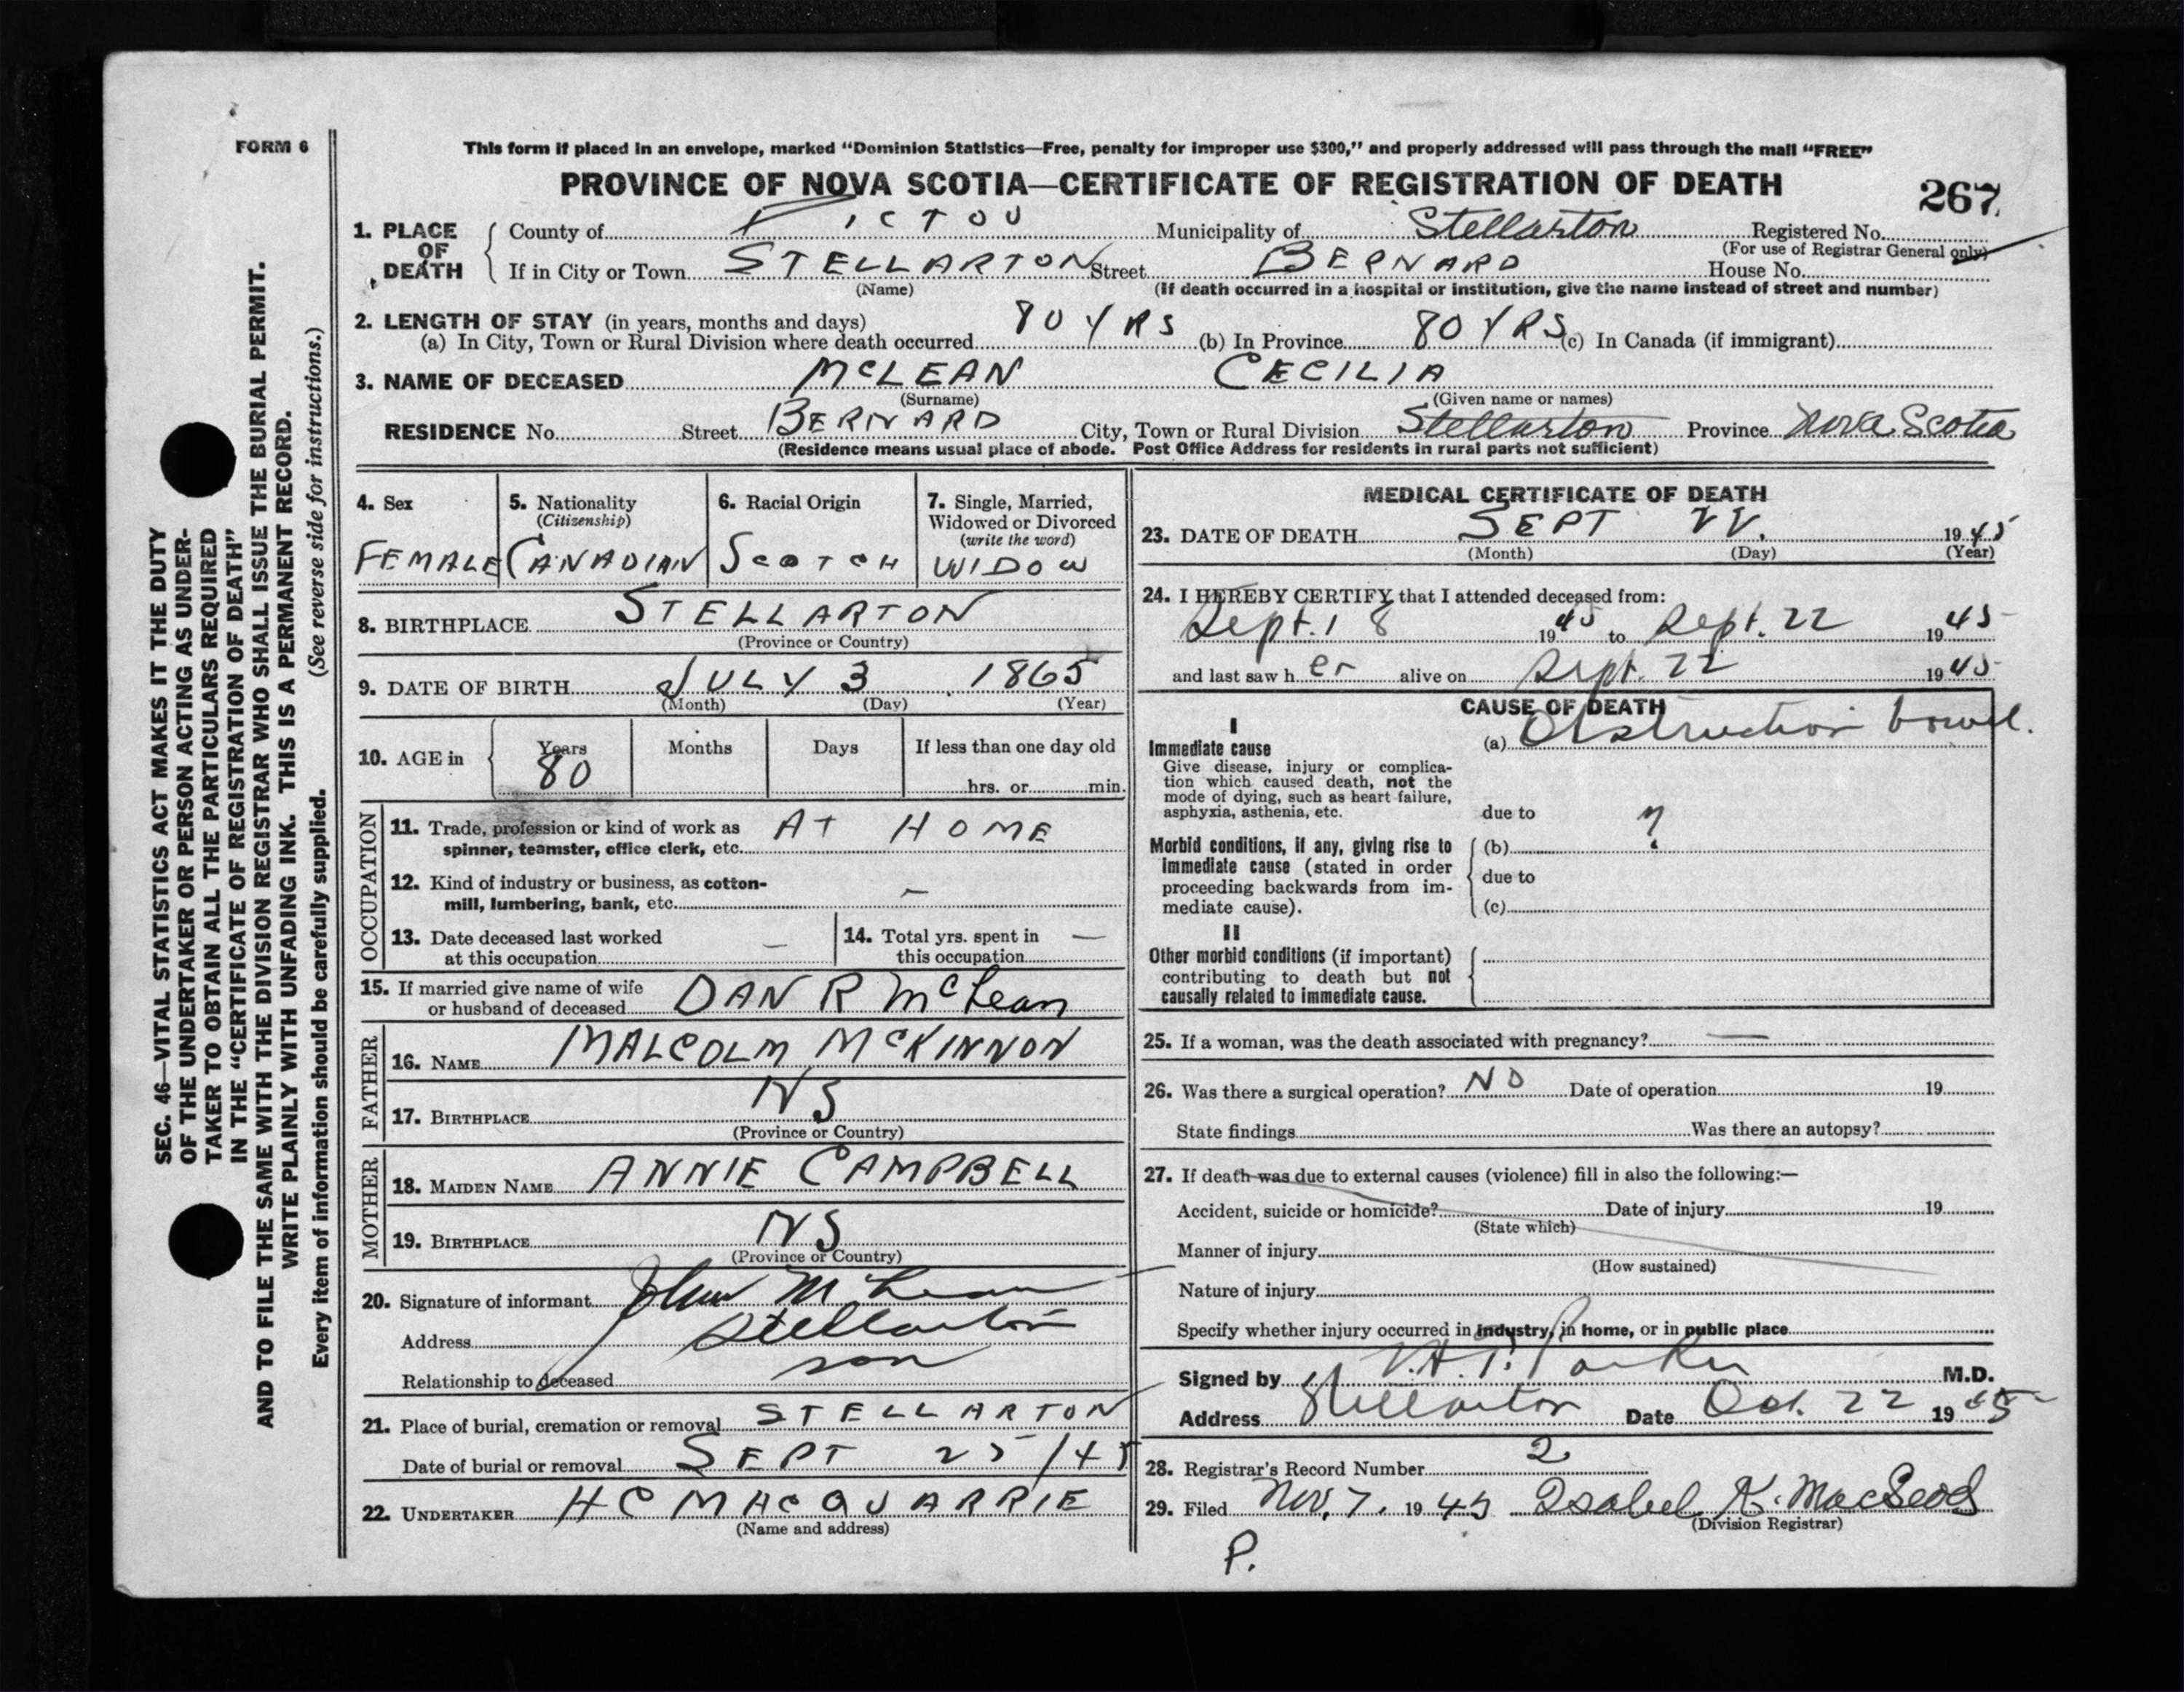 FORM 6
This form if placed in an envelope, marked "Dominion Statistics—Free, penalty for improper use $300," and properly addressed will pass through the mail "FREE"
PROVINCE OF NOVA SCOTIA—CERTIFICATE OF REGISTRATION OF DEATH
267
1. PLACE OF DEATH
County of PICTOU Municipality of Stellarton Registered No.
(For use of Registrar General only)
If in City or Town STELLARTON Street BERNARD House No.
(Name) (If death occurred in a hospital or institution, give the name instead of street and number)
2. LENGTH OF STAY (in years, months and days)
(a) In City, Town or Rural Division where death occurred 80 YRS (b) In Province 80 YRS (c) In Canada (if immigrant)
3. NAME OF DECEASED McLEAN CECILIA
(Surname) (Given name or names)
RESIDENCE No. Street BERNARD City, Town or Rural Division Stellarton Province Nova Scotia
(Residence means usual place of abode. Post Office Address for residents in rural parts not sufficient)
4. Sex
FEMALE
5. Nationality
(Citizenship)
CANADIAN
6. Racial Origin
SCOTCH
7. Single, Married,
Widowed or Divorced
(write the word)
WIDOW
8. BIRTHPLACE STELLARTON
(Province or Country)
9. DATE OF BIRTH JULY 3 1865
(Month) (Day) (Year)
10. AGE in
Years Months Days If less than one day old
80 hrs. or min.
OCCUPATION
11. Trade, profession or kind of work as
spinner, teamster, office clerk, etc. AT HOME
12. Kind of industry or business, as cotton-
mill, lumbering, bank, etc. —
13. Date deceased last worked
at this occupation —
14. Total yrs. spent in
this occupation —
15. If married give name of wife
or husband of deceased DAN R McLean
FATHER
16. NAME MALCOLM McKINNON
17. BIRTHPLACE NS
(Province or Country)
MOTHER
18. MAIDEN NAME ANNIE CAMPBELL
19. BIRTHPLACE NS
(Province or Country)
20. Signature of informant John McLean
Address Stellarton
Relationship to deceased son
21. Place of burial, cremation or removal STELLARTON
Date of burial or removal SEPT 25/45
22. UNDERTAKER H C MACQUARRIE
(Name and address)
MEDICAL CERTIFICATE OF DEATH
23. DATE OF DEATH SEPT 22. 1945
(Month) (Day) (Year)
24. I HEREBY CERTIFY that I attended deceased from:
Sept. 18 1945 to Sept. 22 1945
and last saw her alive on Sept. 22 1945
CAUSE OF DEATH
I
Immediate cause
Give disease, injury or complica-
tion which caused death, not the
mode of dying, such as heart failure,
asphyxia, asthenia, etc.
(a) Obstruction bowel.
due to
Morbid conditions, if any, giving rise to
immediate cause (stated in order
proceeding backwards from im-
mediate cause).
(b) ?
due to
(c)
II
Other morbid conditions (if important)
contributing to death but not
causally related to immediate cause.
25. If a woman, was the death associated with pregnancy? —
26. Was there a surgical operation? NO Date of operation 19
State findings Was there an autopsy?
27. If death was due to external causes (violence) fill in also the following:—
Accident, suicide or homicide? Date of injury 19
(State which)
Manner of injury
(How sustained)
Nature of injury
Specify whether injury occurred in industry, in home, or in public place
Signed by Parker M.D.
Address Stellarton Date Oct. 22 1945
28. Registrar's Record Number 2
29. Filed Nov. 7. 1945 Isabel K. MacLeod
(Division Registrar)
P.
SEC. 46—VITAL STATISTICS ACT MAKES IT THE DUTY
OF THE UNDERTAKER OR PERSON ACTING AS UNDER-
TAKER TO OBTAIN ALL THE PARTICULARS REQUIRED
IN THE "CERTIFICATE OF REGISTRATION OF DEATH"
AND TO FILE THE SAME WITH THE DIVISION REGISTRAR WHO SHALL ISSUE THE BURIAL PERMIT.
WRITE PLAINLY WITH UNFADING INK. THIS IS A PERMANENT RECORD.
Every item of information should be carefully supplied. (See reverse side for instructions.)